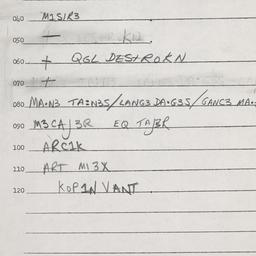 040 M1S/R3
050
060 + QGL DESTROKN
070 +
080 MA·N3 TA:N3S/LANG3 DA·G3S/GANC3 MA·
090 M3CA/3R EQ TA/3R
100 ARC1K
110 ART M13X
120 KOP1N VANT